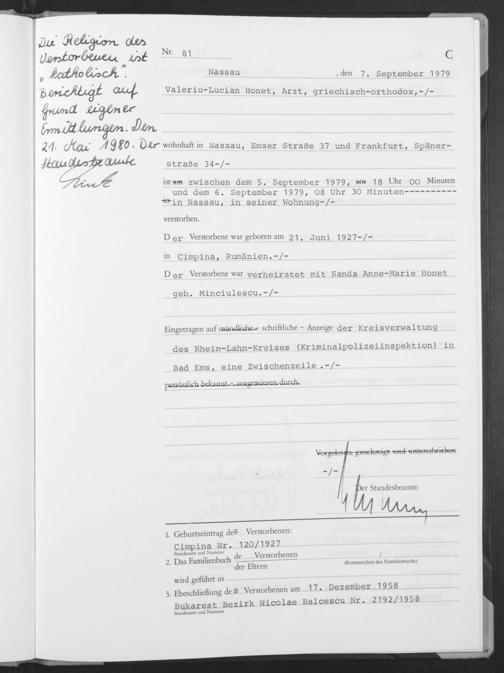 Die Religion des
Verstorbenen ist
„katholisch".
Berichtigt auf
Grund eigener
Ermittlungen. Den
21. Mai 1980. Der
Standesbeamte
Nr. 81
C
Nassau , den 7. September 1979
Valeriu-Lucian Honet, Arzt, griechisch-orthodox,-/-
wohnhaft in Nassau, Emser Straße 37 und Frankfurt, Späner-
straße 34-/-
ist am zwischen dem 5. September 1979, um 18 Uhr 00 Minuten
und dem 6. September 1979, 08 Uhr 30 Minuten----------
in in Nassau, in seiner Wohnung-/-
verstorben.
Der Verstorbene war geboren am 21. Juni 1927-/-
in Cimpina, Rumänien.-/-
Der Verstorbene war verheiratet mit Sanda Anne-Marie Honet
geb. Minciulescu.-/-
Eingetragen auf mündliche - schriftliche - Anzeige der Kreisverwaltung
des Rhein-Lahn-Kreises (Kriminalpolizeiinspektion) in
Bad Ems, eine Zwischenzeile .-/-
persönlich bekannt - ausgewiesen durch
Vorgelesen, genehmigt und unterschrieben
-/-
Der Standesbeamte
1. Geburtseintrag des Verstorbenen:
Cimpina Nr. 120/1927
Standesamt und Nummer
2. Das Familienbuch de Verstorbenen /
der Eltern (Kennzeichen des Familienbuchs)
wird geführt in
3. Eheschließung des Verstorbenen am 17. Dezember 1958
Bukarest Bezirk Nicolae Balcescu Nr. 2192/1958
Standesamt und Nummer